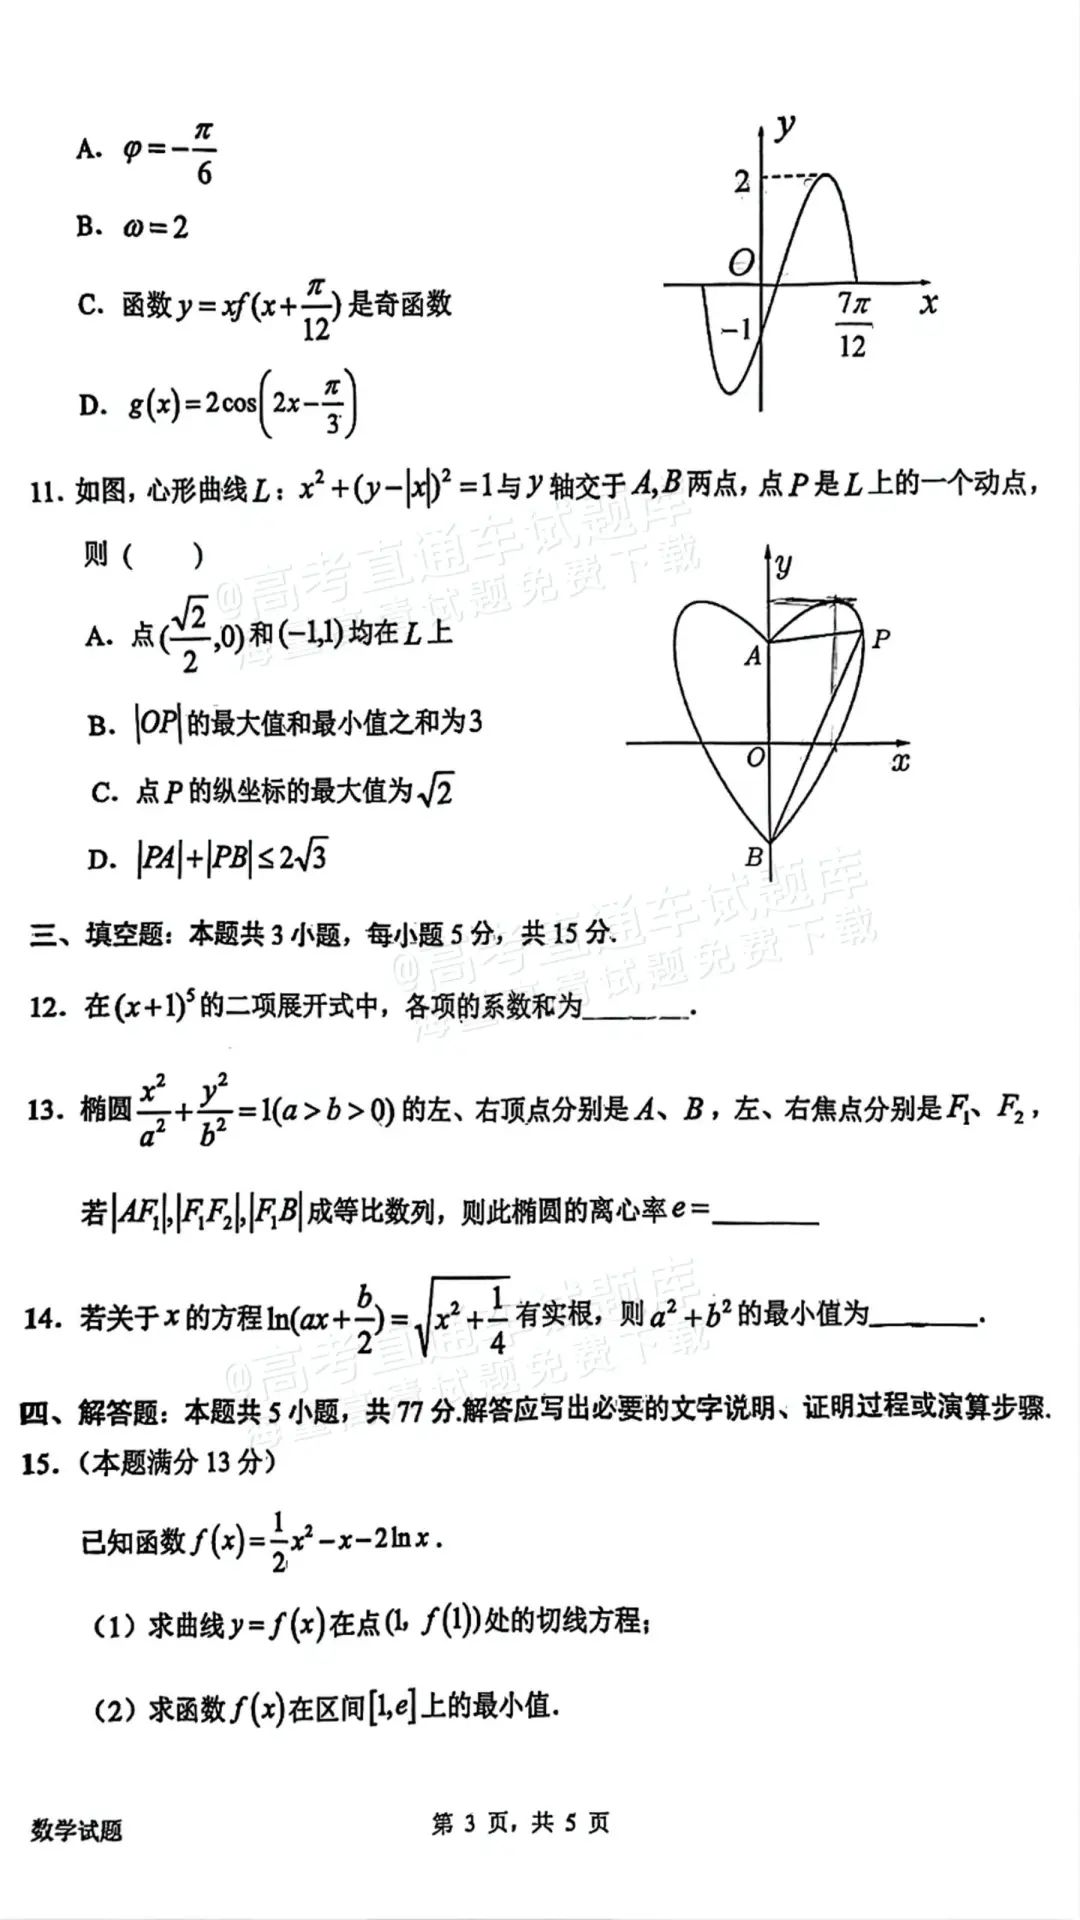 A. φ=-π/6
B. ω=2
C. 函数y=xf(x+π/12)是奇函数
D. g(x)=2cos(2x-π/3)
y
2
O
-1
7π/12
x
11. 如图,心形曲线L:x²+(y-|x|)²=1与y轴交于A,B两点,点P是L上的一个动点,
则( )
A. 点(√2/2,0)和(-1,1)均在L上
B. |OP|的最大值和最小值之和为3
C. 点P的纵坐标的最大值为√2
D. |PA|+|PB|≤2√3
y
A
P
O
x
B
三、填空题:本题共3小题,每小题5分,共15分.
12. 在(x+1)⁵的二项展开式中,各项的系数和为______.
13. 椭圆x²/a²+y²/b²=1(a>b>0)的左、右顶点分别是A、B,左、右焦点分别是F₁、F₂,
若|AF₁|,|F₁F₂|,|F₁B|成等比数列,则此椭圆的离心率e=______
14. 若关于x的方程ln(ax+b/2)=√(x²+1/4)有实根,则a²+b²的最小值为______.
四、解答题:本题共5小题,共77分.解答应写出必要的文字说明、证明过程或演算步骤.
15.(本题满分13分)
已知函数f(x)=1/2x²-x-2lnx.
(1)求曲线y=f(x)在点(1, f(1))处的切线方程;
(2)求函数f(x)在区间[1,e]上的最小值.
数学试题
第 3 页,共 5 页
@高考直通车试题库
海量高清试题免费下载
@高考直通车试题库
海量高清试题免费下载
@高考直通车试题库
海量高清试题免费下载